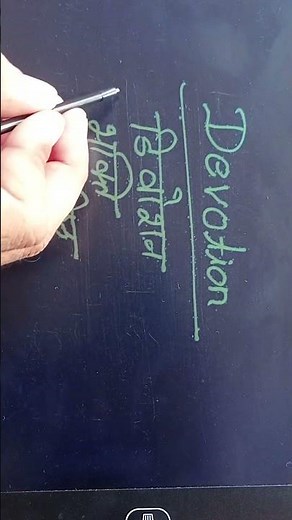 Devotion
डिवोशन
भक्ति